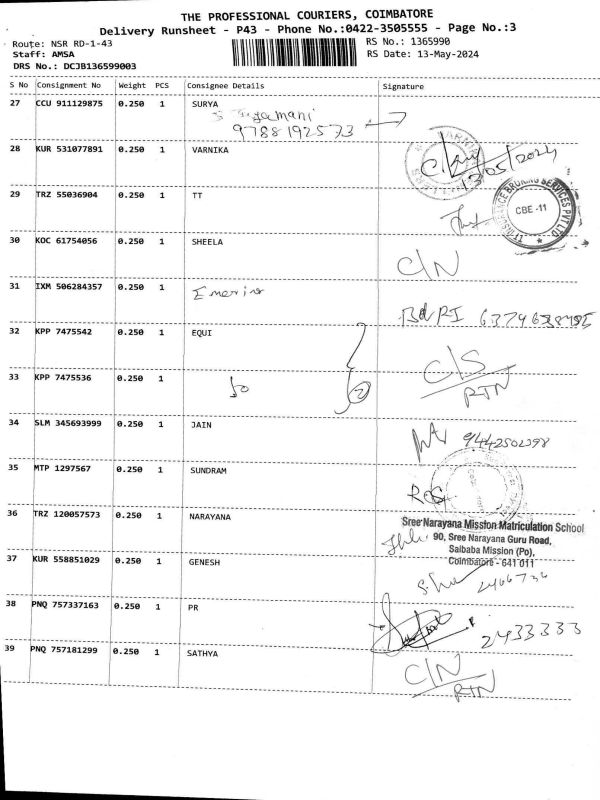 THE PROFESSIONAL COURIERS, COIMBATORE
Delivery Runsheet - P43 - Phone No.:0422-3505555 - Page No.:3
Route: NSR RD-1-43
RS No.: 1365990
Staff: AMSA
RS Date: 13-May-2024
DRS No.: DCJB136599003
S No Consignment No Weight PCS Consignee Details Signature
27 CCU 911129875 0.250 1 SURYA
9788192573
28 KUR 531077891 0.250 1 VARNIKA
13/05/2024
29 TRZ 55036904 0.250 1 TT
CBE -11
30 KOC 61754056 0.250 1 SHEELA
C/N
31 IXM 506284357 0.250 1
32 KPP 7475542 0.250 1 EQUI
C/S
RTN
33 KPP 7475536 0.250 1
34 SLM 345693999 0.250 1 JAIN
9442502398
35 MTP 1297567 0.250 1 SUNDRAM
36 TRZ 120057573 0.250 1 NARAYANA
Sree Narayana Mission Matriculation School
90, Sree Narayana Guru Road,
Saibaba Mission (Po),
Coimbatore - 641 011
37 KUR 558851029 0.250 1 GENESH
2466736
38 PNQ 757337163 0.250 1 PR
2433333
39 PNQ 757181299 0.250 1 SATHYA
C/N
RTN